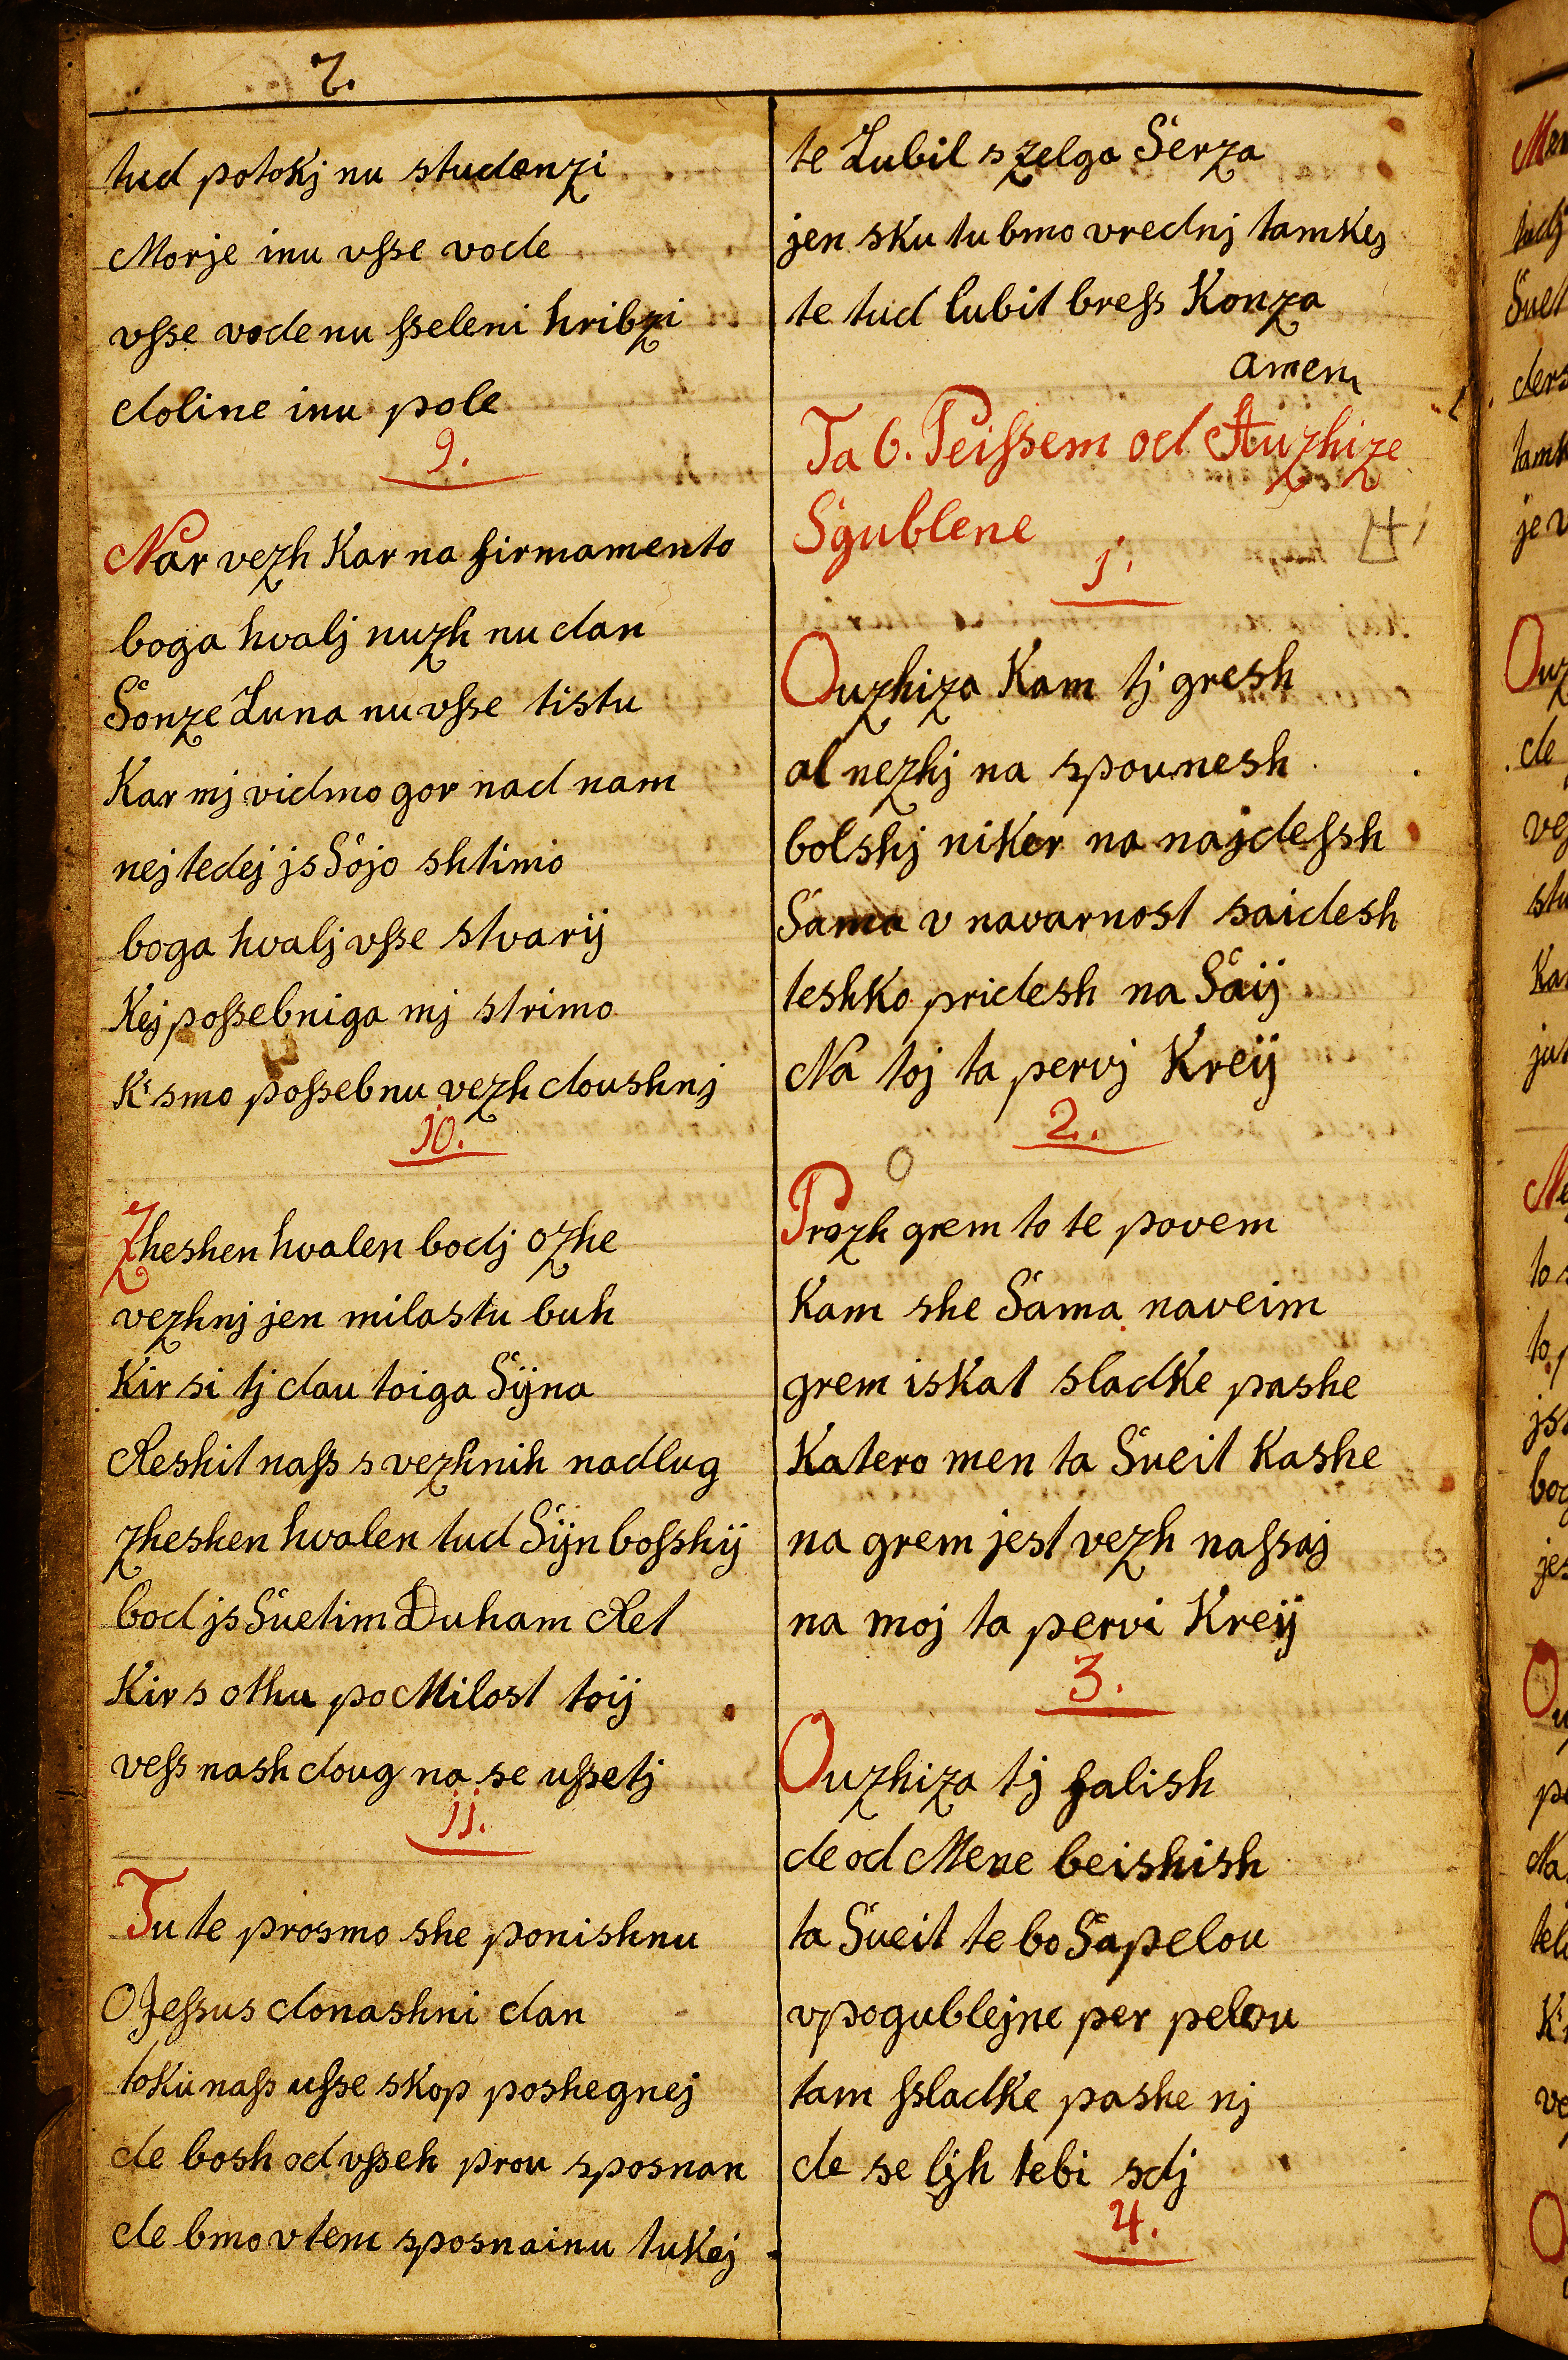 7.
tud potokj nu studenzi
Morje inu vsse vode
vsse vode nu sseleni hribzi
doline inu pole
9.
Nar vezh Kar na firmamento
boga hvalj nuzh nu dan
Sonze Luna nu vsse tistu
Kar mj vidmo gor nad nam
nej tedej js Sojo shtimo
boga hvalj vsse stvarij
Kej possebniga mj strimo
K' smo possebnu vezh doushnj
10.
Zheshen hvalen bodj ozhe
vezhnj jen milostu buh
Kir si tj dau toiga Sijna
Reshit nass s vezhnih nadlug
zheshen hvalen tud Sijn bosshij
bod js Suetim Duham Ret
Kir s othu po Milost toij
vess nash doug na se ussetj
11.
Tu te prosmo she ponishnu
O Jessus donashni dan
toku nass usse skop poshegnej
de bosh od vsseh prou sposnan
de bmo v tem sposnainu tukej
te Lubil s zelga Serza
jen sku tu bmo vrednj tamkej
te tud lubit bress Konza
amen
Ta 6. Peissem od Auzhize
Sgublene
1.
Ouzhiza Kam tj gresh
al nezhj na spounesh
bolshj niker na najdessh
Sama v navarnost saidesh
teshko pridesh na Saij
Na toj ta pervj Kreij
2.
Prozh grem to te povem
Kam she Sama naveim
grem iskat sladke pashe
Katero men ta Sueit Kashe
na grem jest vezh nassaj
na moj ta pervi Kreij
3.
Ouzhiza tj falish
de od Mene beishish
ta Sueit te bo Sapelou
v pogublejne per pelou
tam ssladke pashe nj
de se ljh tebi sdj
4.